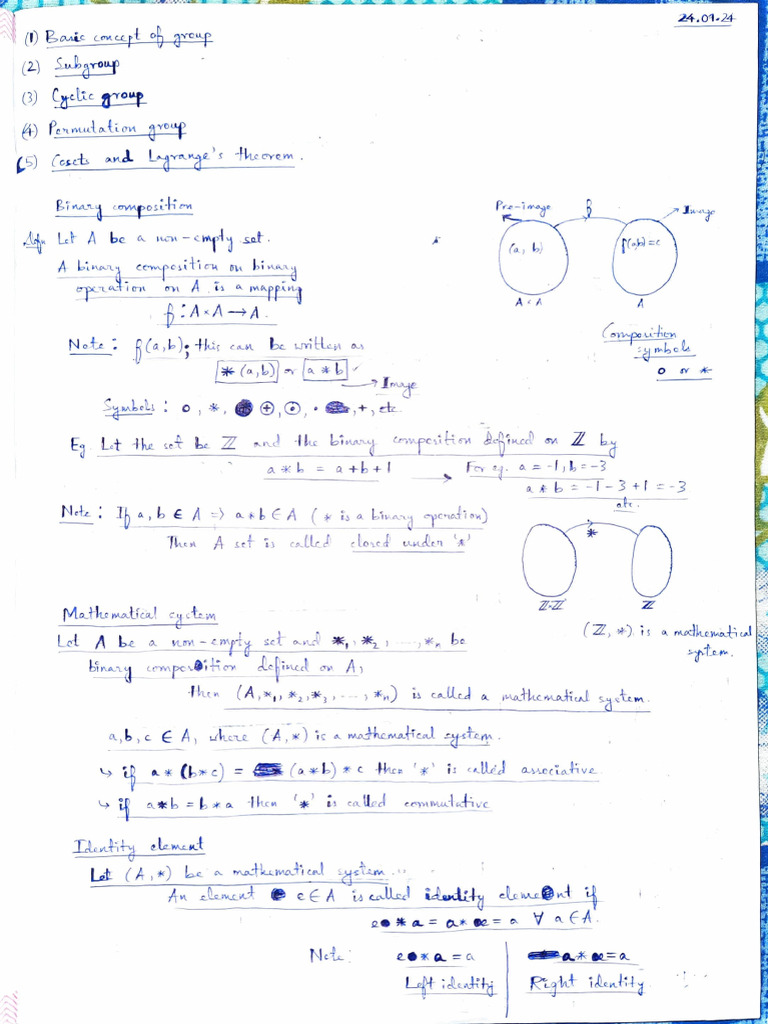 24.01.24
(1) Basic concept of group
(2) Subgroup
(3) Cyclic group
(4) Permutation group
(5) Cosets and Lagrange's theorem.
Binary composition
Defn Let A be a non-empty set.
A binary composition on binary
operation on A is a mapping
f : A×A → A.
Pre-image f Image
(a, b) f(a,b)=c
A×A A
Note: f(a,b); this can be written as
*(a,b) or a*b
Image
Composition
symbols
o or *
Symbols : o, *, ⊕, ⊙, ·, +, etc.
Eg. Let the set be ℤ and the binary composition defined on ℤ by
a * b = a+b+1
For eg. a = -1, b = -3
a * b = -1 - 3 + 1 = -3
etc.
Note: If a, b ∈ A => a*b ∈ A (* is a binary operation)
Then A set is called closed under '*'
*
ℤ×ℤ ℤ
(ℤ, *) is a mathematical
system.
Mathematical system
Let A be a non-empty set and *₁, *₂, ...., *ₙ be
binary composition defined on A,
then (A, *₁, *₂, *₃, ...., *ₙ) is called a mathematical system.
a, b, c ∈ A, where (A, *) is a mathematical system.
↳ if a * (b*c) = (a*b) * c then '*' is called associative
↳ if a*b = b*a then '*' is called commutative
Identity element
Let (A, *) be a mathematical system.
An element e ∈ A is called identity element if
e * a = a * e = a ∀ a ∈ A.
Note: e * a = a
Left identity
a * e = a
Right identity